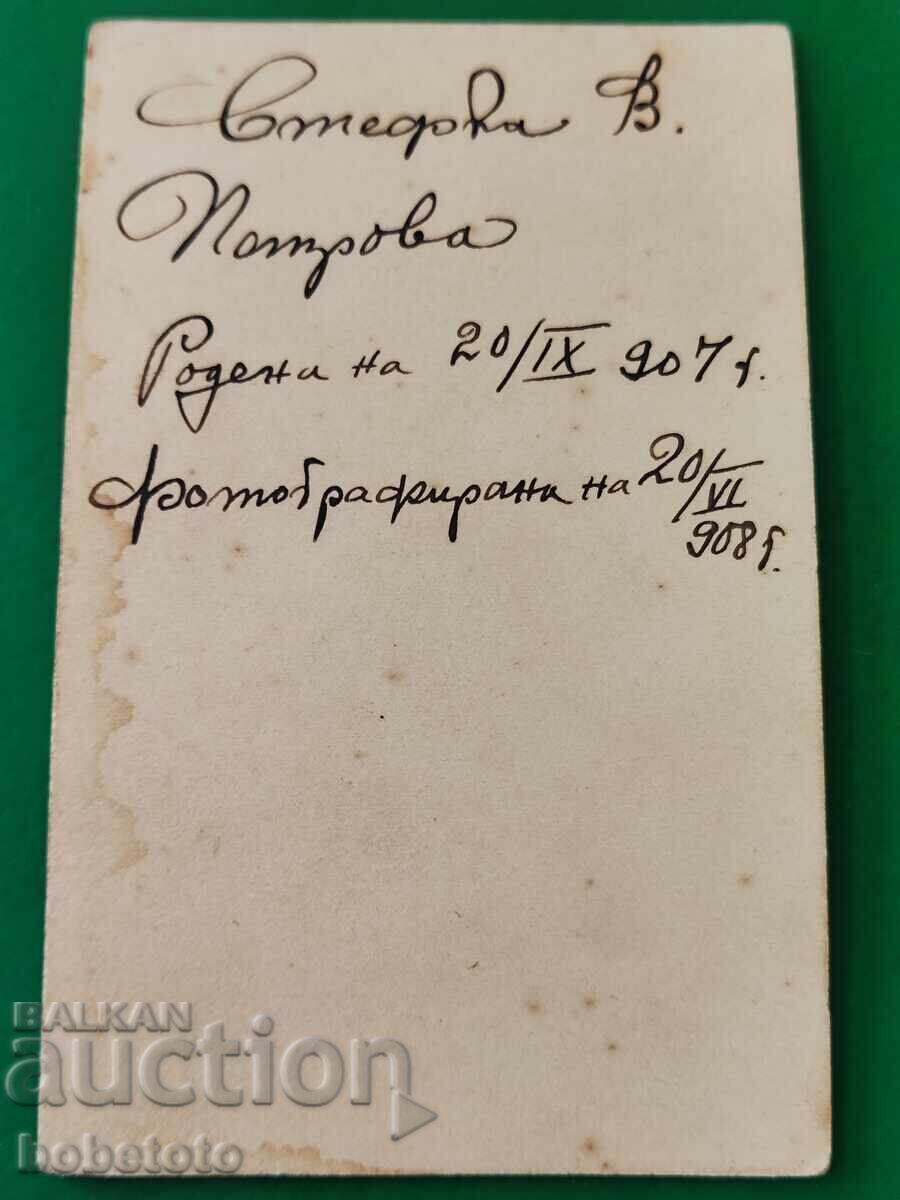 Стефка В.
Петрова
Родена на 20/IX 907 г.
Фотографирана на 20/VI
908 г.
BALKAN
auction
hobetoto